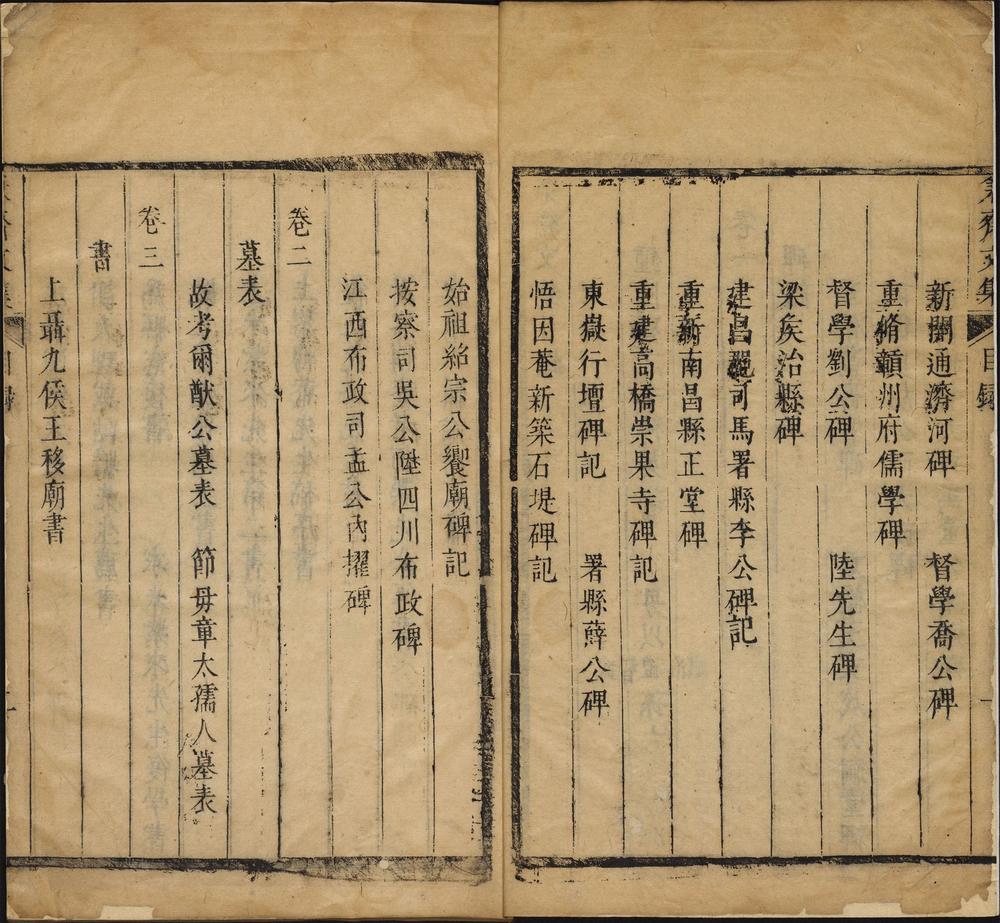 齋文集 目録
新開通濟河碑 督學喬公碑
重脩贛州府儒學碑
督學劉公碑 陸先生碑
梁矦治縣碑
建昌司馬署縣李公碑記
重新南昌縣正堂碑
重建高橋崇果寺碑記
東嶽行壇碑記 署縣薛公碑
悟因菴新築石堤碑記
始祖給宗公饗廟碑記
按察司吳公陞四川布政碑
江西布政司孟公內擢碑
卷二
墓表
故考爾猷公墓表 節毋章太孺人墓表
卷三
書
上聶九侯王移廟書